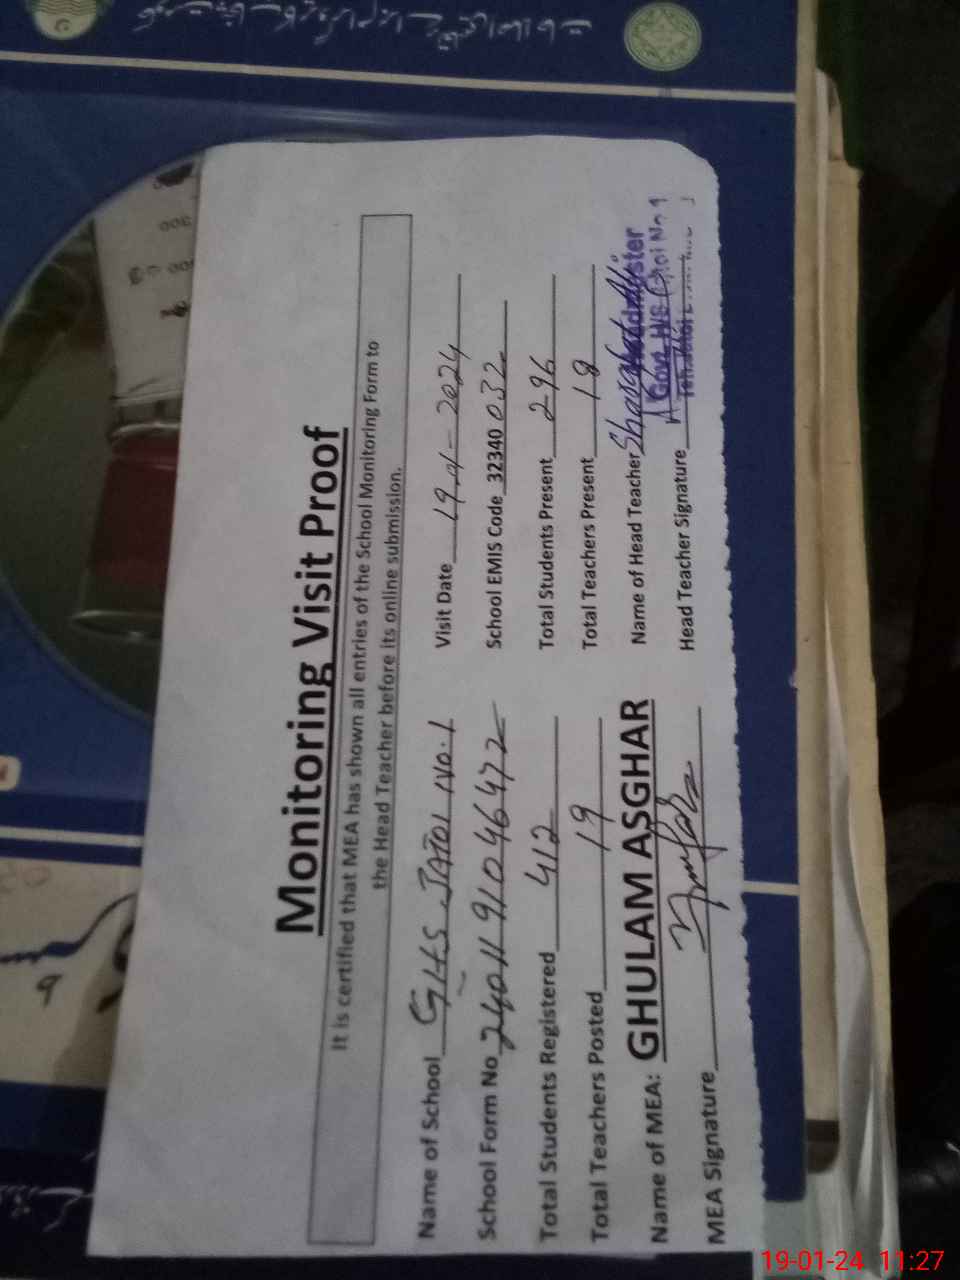 Monitoring Visit Proof
It is certified that MEA has shown all entries of the School Monitoring Form to
the Head Teacher before its online submission.
Name of School GHS JATOI No.1 Visit Date 19-01-2024
School Form No 24011910 46472 School EMIS Code 32340 032
Total Students Registered 412 Total Students Present 296
Total Teachers Posted 19 Total Teachers Present 18
Name of MEA: GHULAM ASGHAR Name of Head Teacher
Headmaster
Govt. H/S Jatoi No 1
MEA Signature Head Teacher Signature
19-01-24 11:27